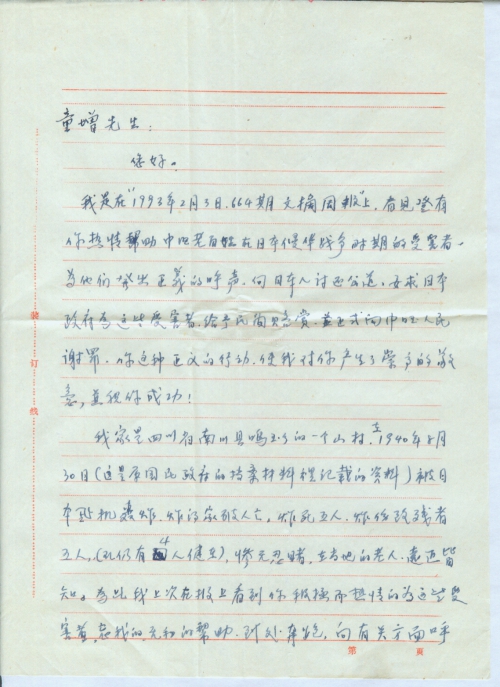 童增先生：
您好。
我是在"1993年2月3日.664期文摘周报"上，看见登有
你热情帮助中国老百姓在日本侵华战争时期的受害者，
为他们发出正义的呼声，向日本人讨还公道，要求日本
政府为这些受害者给予民间赔赏，并正式向中国人民
谢罪。你这种正义的行动，使我对你产生了崇高的敬
意，真祝你成功！
我家是四川省南川县鸣玉的一个山村，在1940年8月
30日（这是原国民政府的档案材料里记载的资料）被日
本敌机轰炸，炸的家破人亡，炸死五人，炸伤致残者
五人，（现仍有4人健在），惨无忍睹，在当地的老人，远近皆
知。为此我上次在报上看到你积极而热情的为这些受
害者，在我的无私的帮助，到处奔跑，向有关方面呼
装订线
第 页